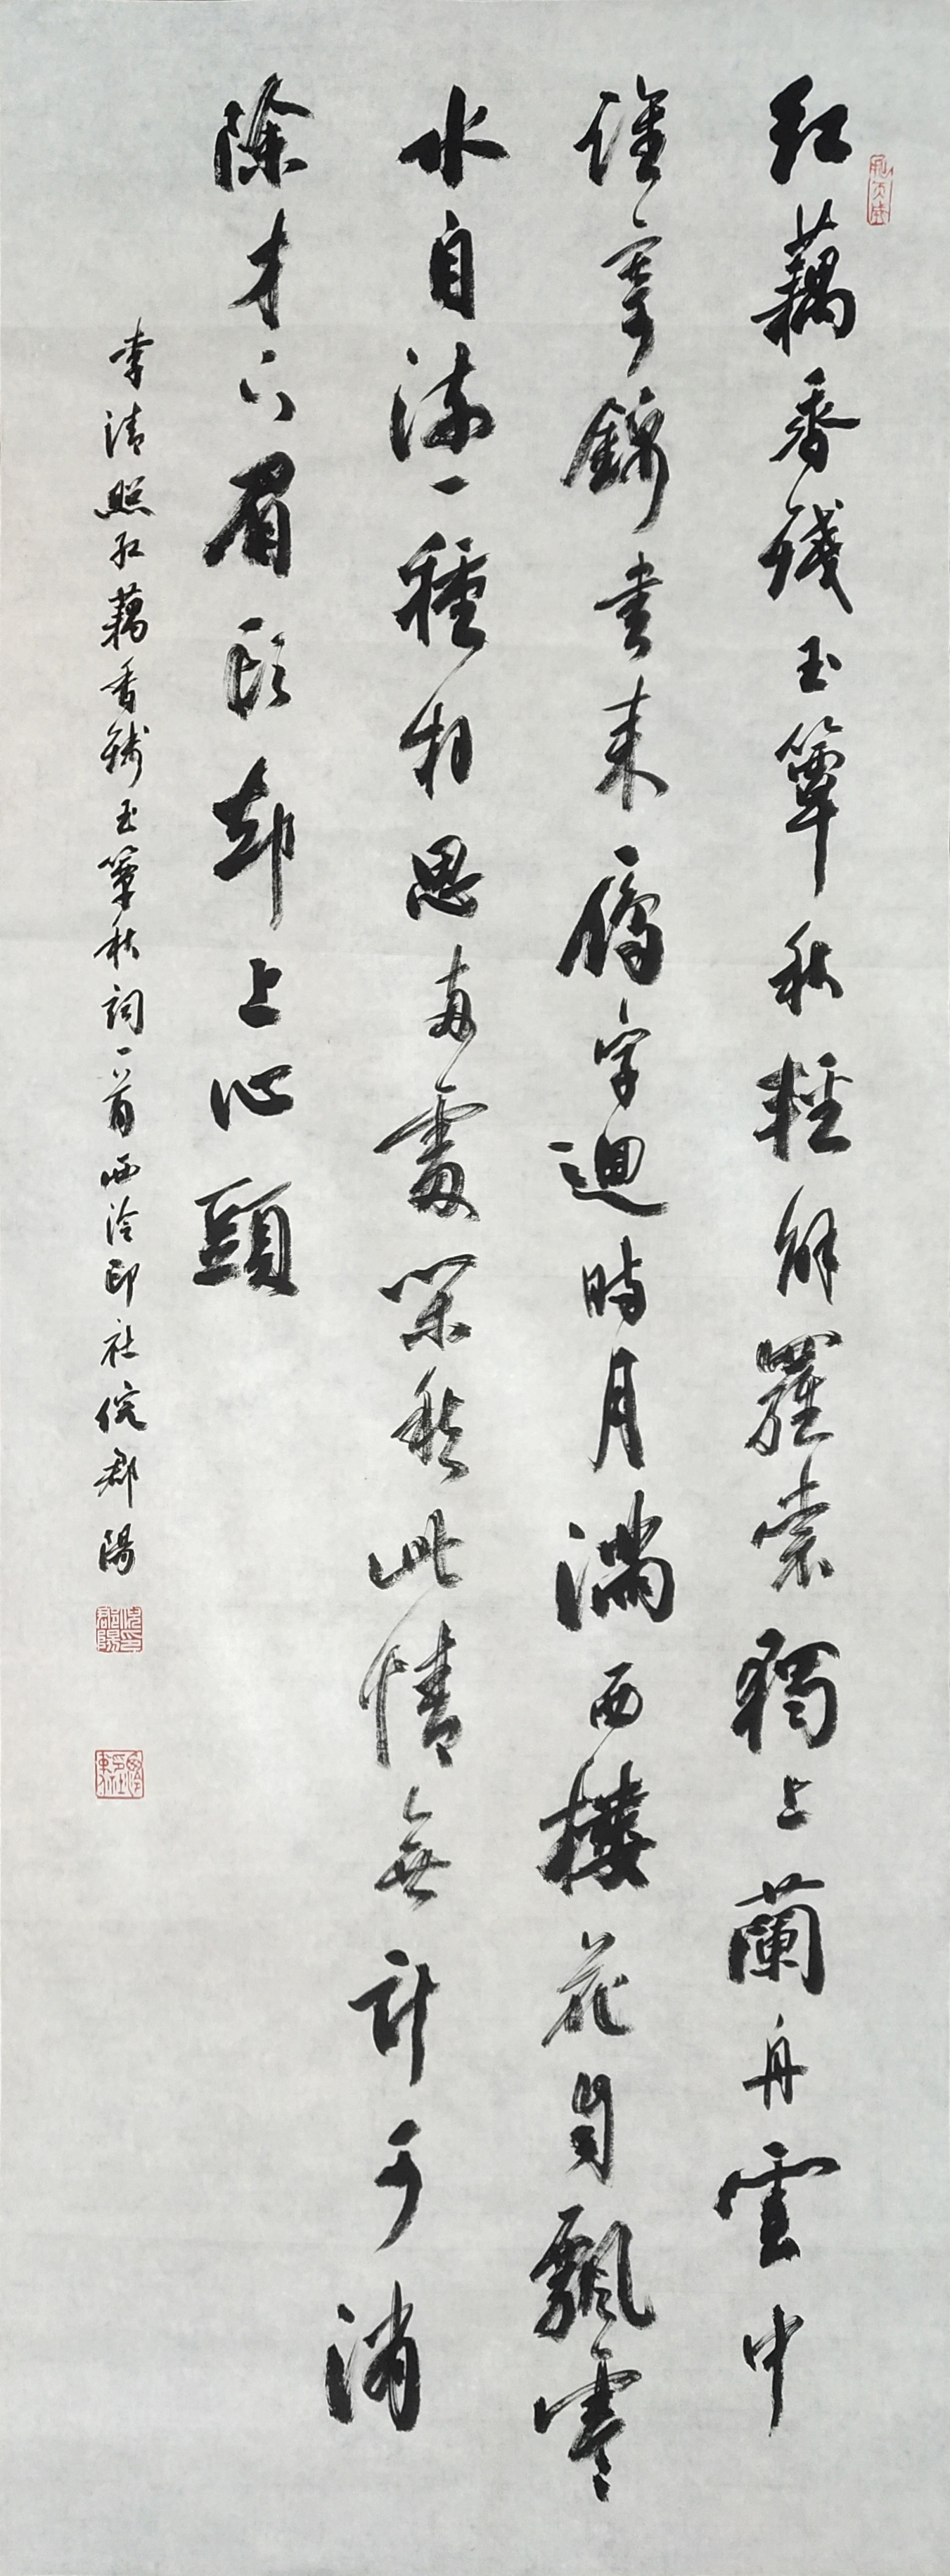 紅藕香殘玉簟秋輕解羅裳獨上蘭舟雲中
誰寄錦書來雁字迴時月滿西樓花自飄零
水自流一種相思兩處閑愁此情無計可消
除才下眉頭却上心頭
李清照紅藕香殘玉簟秋詞一首西泠印社倪郡陽